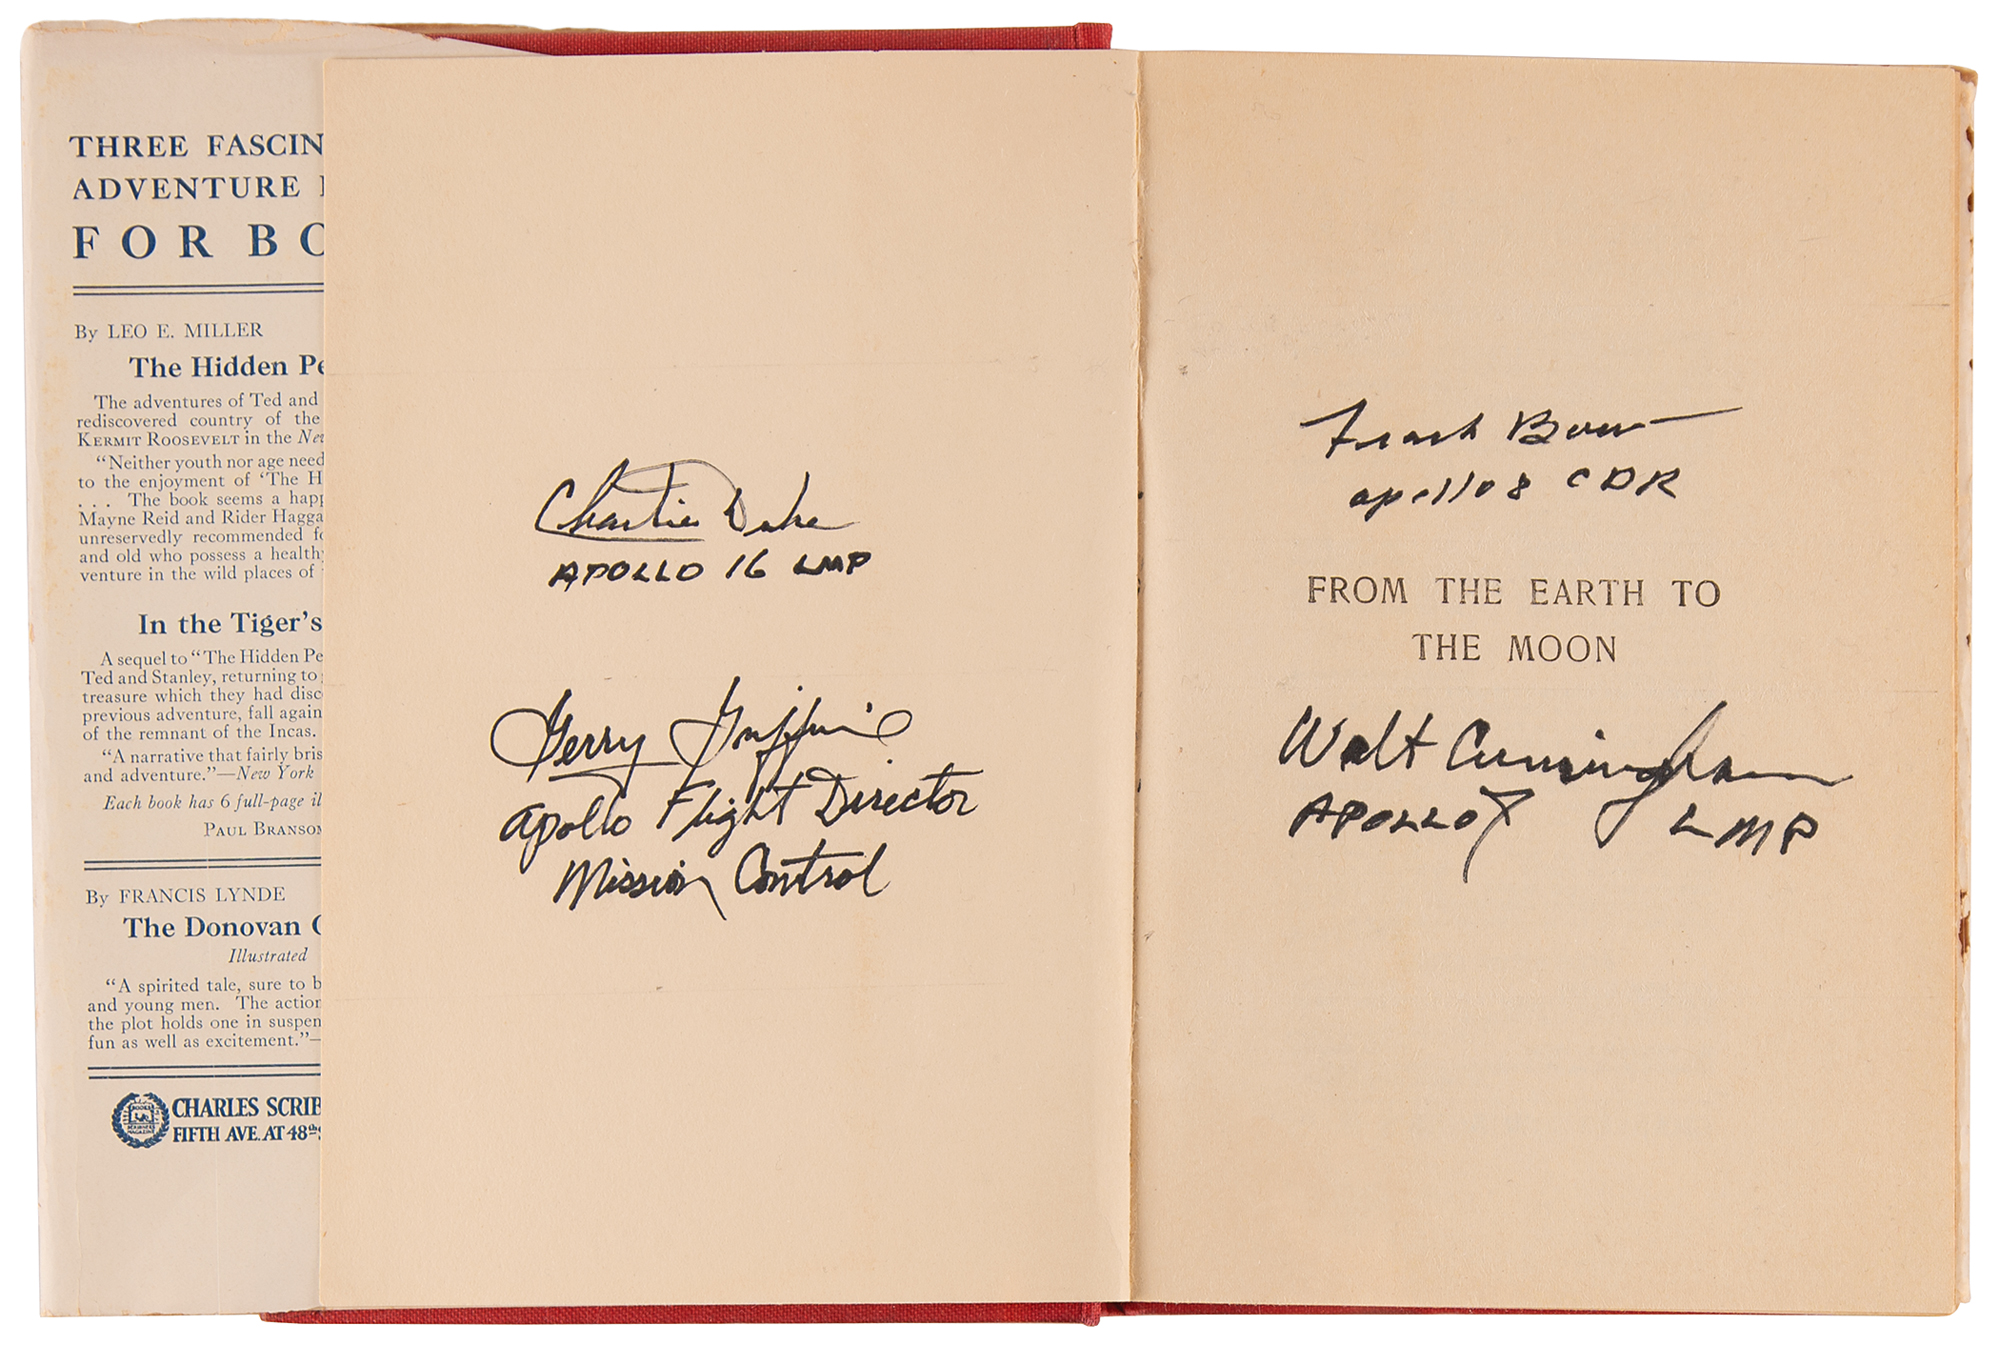 THREE FASCIN
ADVENTURE
FOR BO
By LEO E. MILLER
The Hidden Pe
The adventures of Ted and
rediscovered country of the
KERMIT ROOSEVELT in the Ne
"Neither youth nor age need
to the enjoyment of 'The H
. . . The book seems a happ
Mayne Reid and Rider Hagga
unreservedly recommended fo
and old who possess a health
venture in the wild places of
In the Tiger's
A sequel to "The Hidden Pe
Ted and Stanley, returning to
treasure which they had disc
previous adventure, fall again
of the remnant of the Incas.
"A narrative that fairly bris
and adventure."—New York
Each book has 6 full-page il
PAUL BRANSOM
By FRANCIS LYNDE
The Donovan C
Illustrated
"A spirited tale, sure to b
and young men. The action
the plot holds one in suspen
fun as well as excitement."—
CHARLES SCRIB
FIFTH AVE. AT 48th S
Charlie Duke
APOLLO 16 LMP
Gerry Griffin
Apollo Flight Director
Mission Control
Frank Borman
apollo 8 CDR
FROM THE EARTH TO
THE MOON
Walt Cunningham
APOLLO 7 LMP